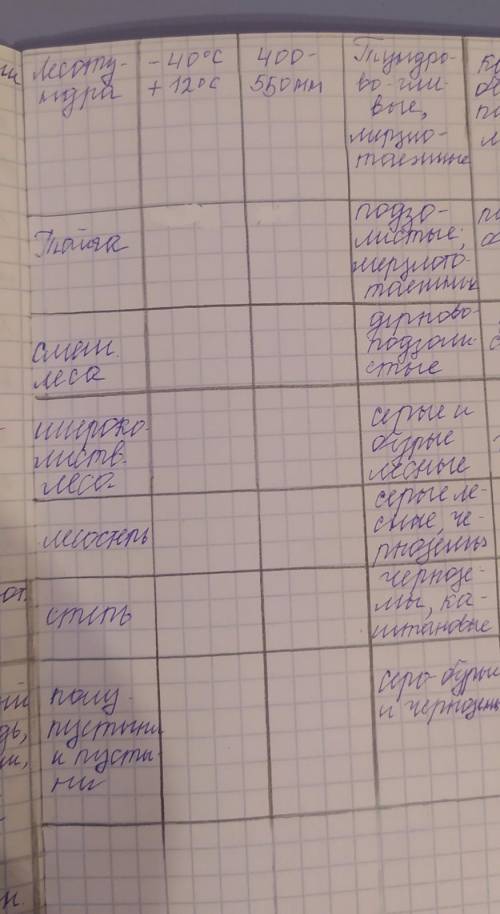 лесоту-
ндра
-40°С
+12°С
400-
550мм
Тундро-
во-гле-
вые,
мерзло-
таежные
Тайга
подзо-
листые;
мерзлото-
таежные
смеш.
леса
дерново-
подзоли-
стые
широко-
листв.
леса
серые и
бурые
лесные
лесостепь
серые ле-
сные, че-
рнозёмы
степь
чернозе-
мы, ка-
штановые
полу-
пустыни
и пусты-
ни
серо-бурые